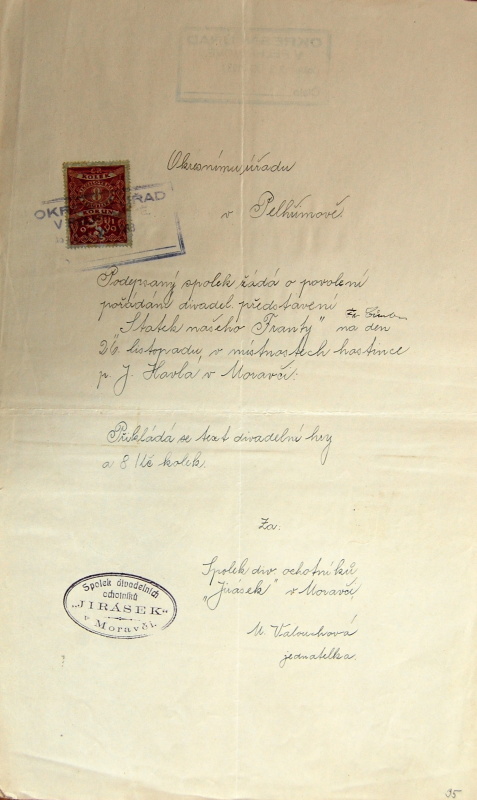 Okresnímu úřadu
v Pelhřimově
KOLEK
KORUN
OKRESNÍ ÚŘAD
Podepsaný spolek žádá o povolení
pořádání divadel. představení
"Statek našeho Franty" na den
26. listopadu, v místnostech hostince
p. J. Havla v Moravči.
Přikládá se text divadelní hry
a 8 Kč kolek.
Za.
Spolek div. ochotníků
"Jirásek" v Moravči
M. Valouchová
jednatelka.
Spolek divadelních
ochotníků
„JIRÁSEK"
v Moravči.
95